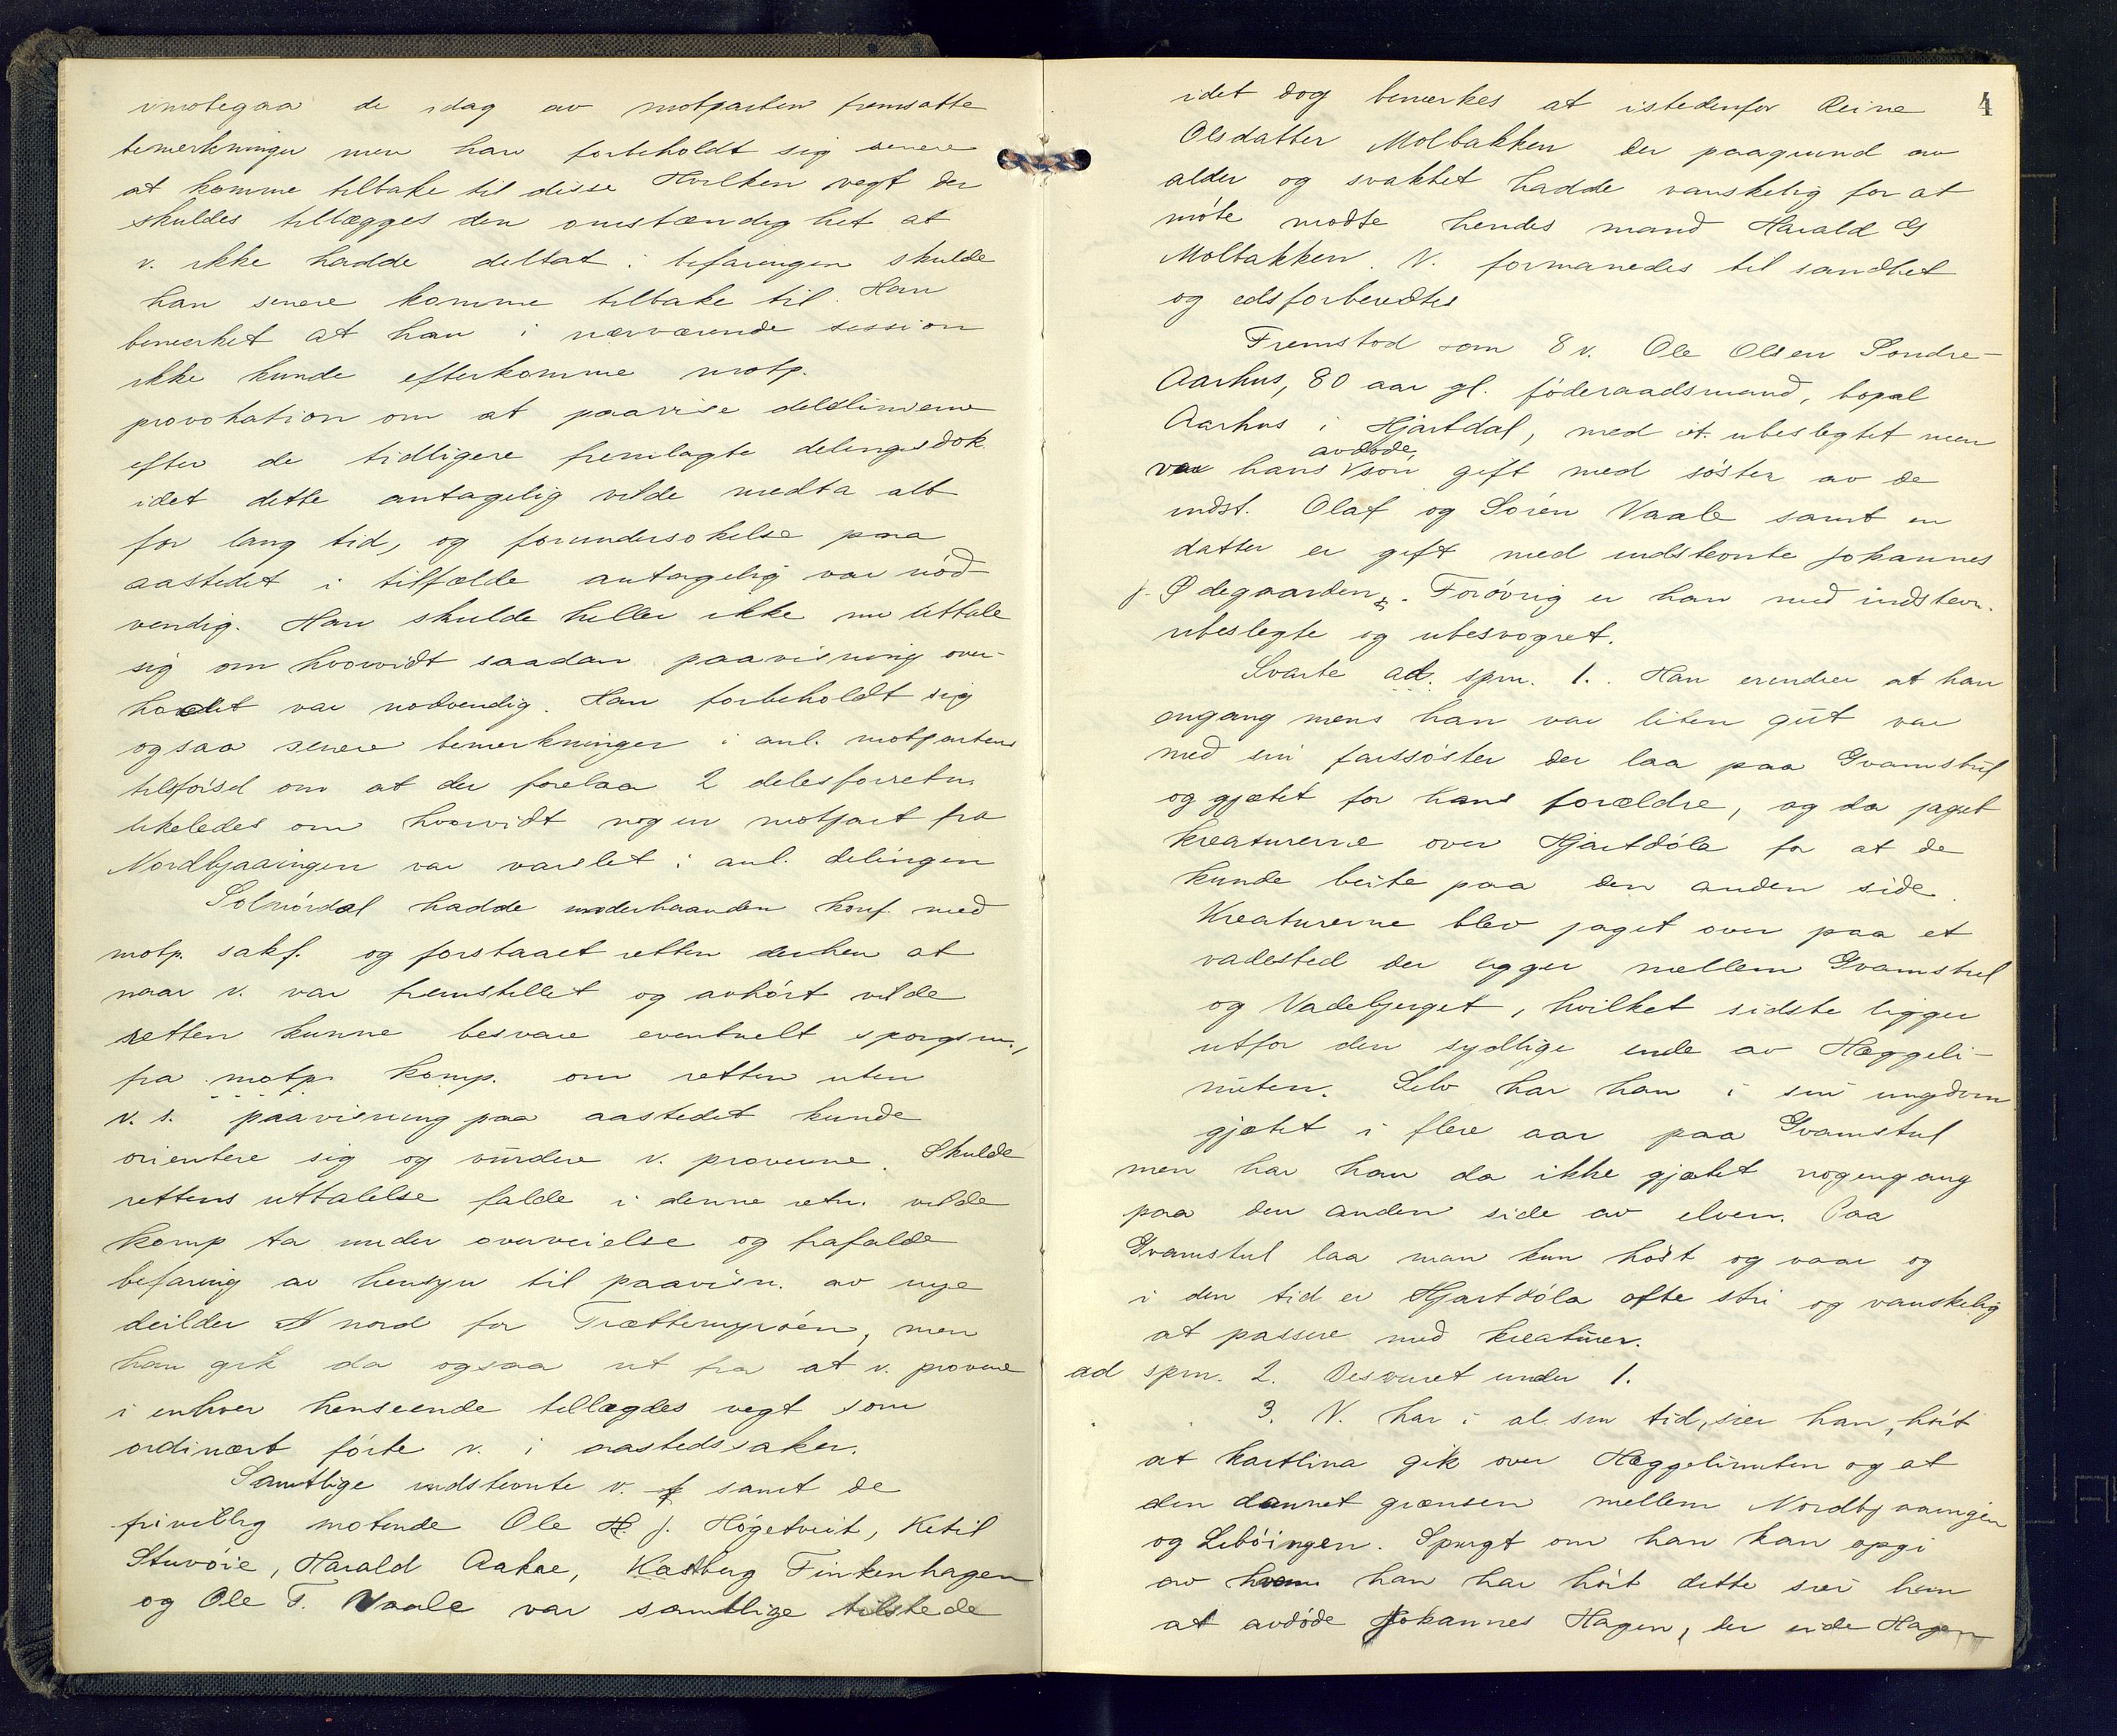 imøtegaa de idag av motparten fremsatte
bemerkninger men han forbeholdt sig senere
at komme tilbake til disse Hvilken vegt der
skuldes tillægges den omstændighet at
v. ikke hadde deltat i befaringen skulde
han senere komme tilbake til. Han
bemerket at han i nærværende session
ikke kunde efterkomme motp.
provokation om at paavise delelinierne
efter de tidligere fremlagte delingsdok.
idet dette antagelig vilde medta alt
for lang tid, og forundersøkelse paa
aastedet i tilfælde antagelig var nød-
vendig. Han skulde heller ikke nu uttale
sig om hvorvidt saadan paavisning over-
hodet var nødvendig. Han forbeholdt sig
ogsaa senere bemerkninger i anl. motpartens
tilførsel om at der forelaa 2 delesforretn.
likeledes om hvorvidt nogen motpart fra
Nordbjaaingen var varslet i anl. delingen
Solnørdal hadde underhaanden konf. med
motp. sakf. og forstaaet retten derhen at
naar v. var fremstillet og avhørt vilde
retten kunne besvare eventuelt spørgsm.,
fra motp. komp. om retten uten
v. s. paavisning paa aastedet kunde
orientere sig og vurdere v. provene. Skulde
rettens uttalelse falde i denne retn. vilde
komp ta under overveielse og frafalde
befaring av hensyn til paavisn. av nye
deilder nord for Trættemyrøen, men
han gik da ogsaa ut fra at v. provene
i enhver henseende tillægdes vegt som
ordinært førte v. i aastedssaker.
Samtlige indstevnte v. samt de
frivillig møtende Ole J. Høgetveit, Ketil
Stuvøie, Harald Aakre, Kastberg Finkenhagen
og Ole T. Vaale var samtlige tilstede
4
idet dog bemerkes at istedenfor Reine
Olsdatter Molbakken der paagrund av
alder og svakhet hadde vanskelig for at
møte mødte hendes mand Harald G
Molbakken. V. formanedes til sandhet
og edsforberedtes
Fremstod som 8 v. Ole Olsen Søndre-
Aarhus, 80 aar gl. føderaadsmand, bopæl
Aarhus i Hjartdal, med cit. ubeslegtet men
avdøde
var hans søn gift med søster av de
indst. Olaf og Søren Vaale samt en
datter er gift med indstevnte Johannes
J. Ødegaarden. Forøvrig er han med indstevn.
ubeslegte og ubesvogret.
Svarte ad. spm. 1. Han erindrer at han
engang mens han var liten gut var
med sin farssøster der laa paa Gvamstul
og gjætet for hans forældre, og da jaget
kreaturerne over Hjartdøla for at de
kunde beite paa den anden side.
Kreaturerne blev jaget over paa et
vadested der ligger mellem Gvamstul
og Vadebjerget, hvilket sidste ligger
utfor den sydlige ende av Hæggeli-
nuten. Selv har han i sin ungdom
gjætet i flere aar paa Gvamstul
men har han da ikke gjætet nogengang
paa den anden side av elven. Paa
Gvamstul laa man kun høst og vaar og
i den tid er Hjartdøla ofte stri og vanskelig
at passere med kreaturer.
ad spm. 2. Besvaret under 1.
3. V. har i al sin tid, sier han, hørt
at kartlina gik over Hæggelinuten og at
den dannet grænsen mellem Nordbjaaingen
og Libøingen. Spurgt om han kan opgi
av hvem han har hørt dette sier han
at avdøde Johannes Hagen, der eide Hagen